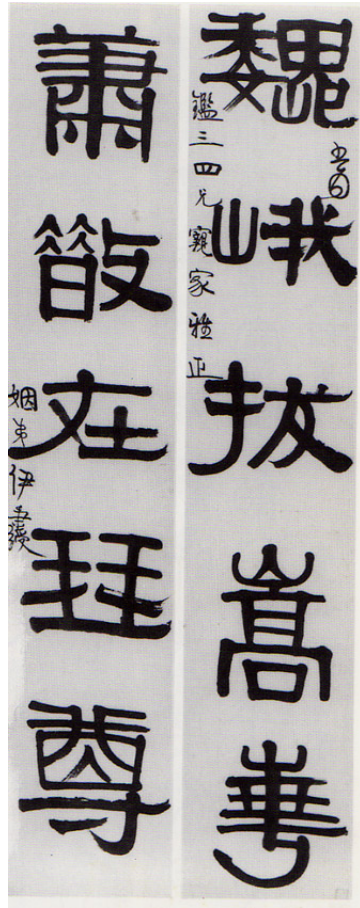 魏峨拔嵩華
鑑三四兄寴家雅正
蕭散在琴尊
姻弟伊秉綬